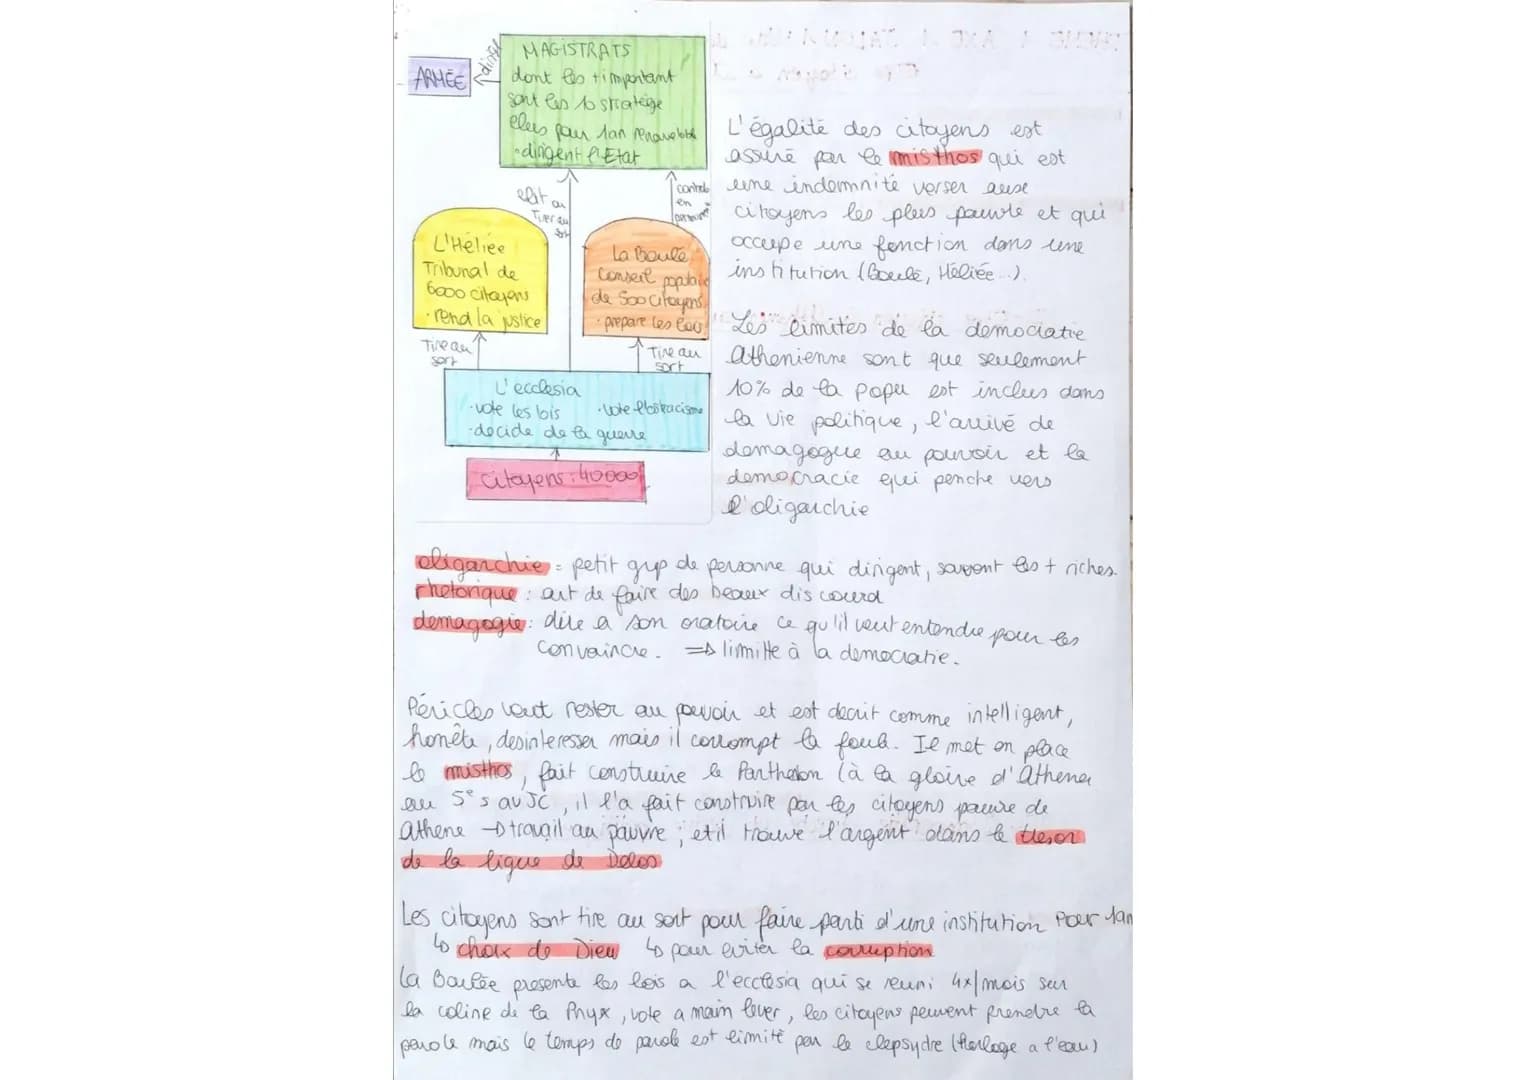 ARMÉE
dirige
MAGISTRATS
dont les + important
sont les 10 stratège
élus pour 1an renouvelable
· dirigent l'Etat
elit ou
Tire au
sort
control
en
L'Héliée
Tribunal de
6000 citoyens
· rend la justice
La Boulé
Conseil populaire
de 500 citoyens
· prepare les lois
Tire au
sort
Tire au
sort
L'ecclesia
· vote les lois
· vote l'ostracisme
· decide de la guerre
Citoyens : 40000
L'égalité des citoyens est
assuré par le misthos qui est
une indemnité verser aux
citoyens les plus pauvre et qui
occupe une fonction dans une
institution (Boulé, Héliée...).
Les limites de la democratie
Athenienne sont que seulement
10% de la popu est inclus dans
la vie politique, l'arrivé de
demagogue au pouvoir et la
democracie qui penche vers
l'oligarchie
oligarchie = petit grup de personne qui dirigent, souvent les + riches.
rhetorique : art de faire des beaux discourd
demagogie : dire a son oratoire ce qu'il veut entendre pour les
convaincre. ⇒ limitte à la democratie.
Périclès veut rester au pouvoir et est decrit comme intelligent,
honête, desinteresser mais il corrompt la foule. Il met en place
le misthos, fait construire le Parthenon (à la gloire d'Athena
au 5e s av JC, il l'a fait construire par les citoyens pauvre de
Athene → travail au pauvre ; et il trouve l'argent dans le tresor
de la ligue de Delos
Les citoyens sont tire au sort pour faire parti d'une institution Pour 1an
↳ choix de Dieu ↳ pour eviter la corruption
La Boulée presente les lois a l'ecclesia qui se reuni 4x/mois sur
la coline de la Pnyx, vote a main lever, les citoyens peuvent prendre la
parole mais le temps de parole est limité par le clepsydre (Horloge a l'eau)